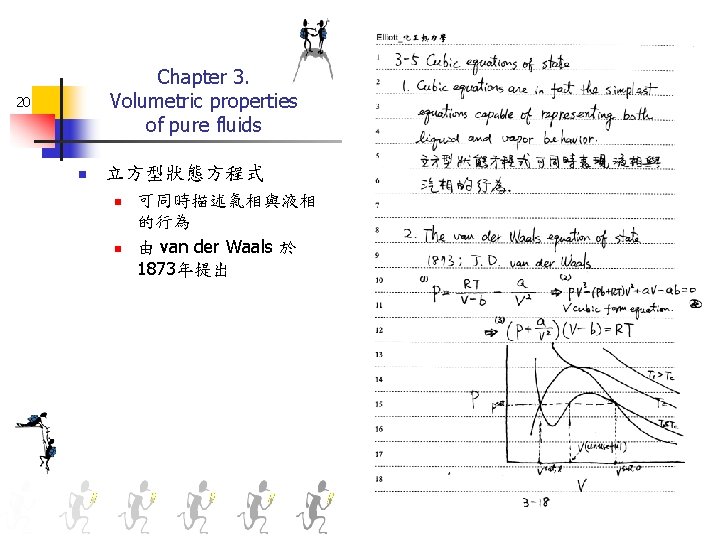 20
Chapter 3.
Volumetric properties
of pure fluids
立方型狀態方程式
可同時描述氣相與液相
的行為
由 van der Waals 於
1873年提出
Elliott_化工熱力學
1 3-5 Cubic equations of state
2 1. Cubic equations are in fact the simplest
3 equations capable of representing both
4 liquid and vapor behavior.
5 立方型狀態方程式可同時表現液相與
6 汽相的行為.
7
8 2. The van der Waals equation of state
9 1893; J.D. van der Waals
10 (1) P = RT/(V-b) - a/V² (2) ⇒ PV³-(Pb+RT)V²+aV-ab=0
11 V cubic form equation.
12 (3) ⇒ (P+a/V²)(V-b)=RT
13 T₁>Tc
14 P Tc
15
16
17
18 V
3-18